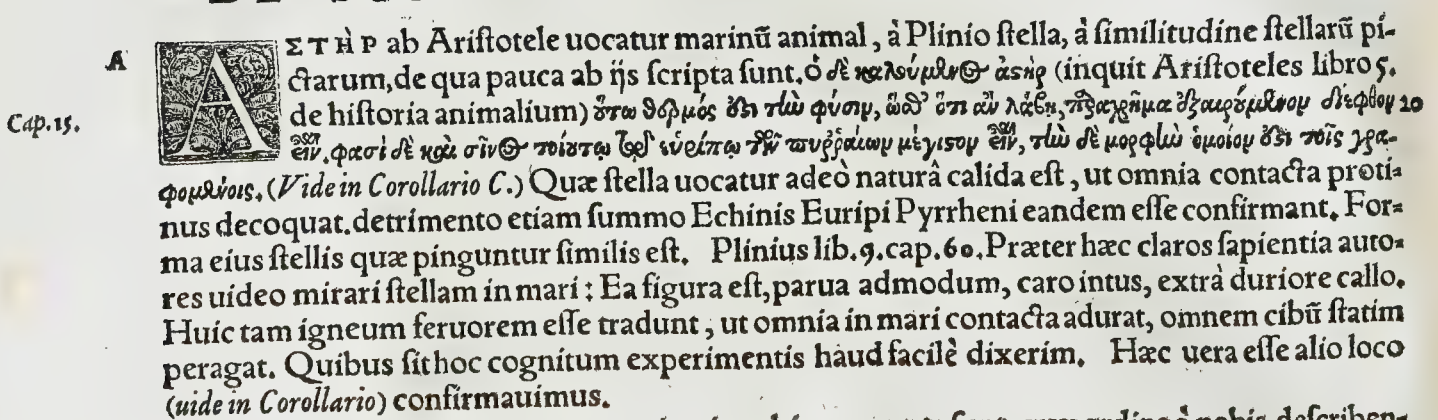 A ΑΣΤῊΡ ab Ariſtotele uocatur marinũ animal, à Plinio ſtella, à ſimilitudine ſtellarũ pi-
ctarum, de qua pauca ab ijs ſcripta ſunt. ὁ δὲ καλούμενος ἀστὴρ (inquit Ariſtoteles libro 5.
Cap.15. de hiſtoria animalium) οὕτω θερμός ἐστι τὴν φύσιν, ὥσθ' ὅτι ἂν λάβῃ, παραχρῆμα ἐξαιρούμενον δίεφθον 10
εἶναι. φασὶ δὲ καὶ σῖνος εὐρίπῳ τῶν πυῤῥαίων μέγιστον εἶναι, τὴν δὲ μορφὴν ὅμοιον ἐστὶ τοῖς γρα-
φομένοις. (Vide in Corollario C.) Quæ ſtella uocatur adeò naturâ calida eſt, ut omnia contacta proti-
nus decoquat. detrimento etiam ſummo Echinis Euripi Pyrrheni eandem eſſe confirmant. For-
ma eius ſtellis quæ pinguntur ſimilis eſt. Plinius lib.9.cap.60. Præter hæc claros ſapientia auto-
res uideo mirari ſtellam in mari: Ea figura eſt, parua admodum, caro intus, extrà duriore callo.
Huic tam igneum feruorem eſſe tradunt, ut omnia in mari contacta adurat, omnem cibũ ſtatim
peragat. Quibus ſit hoc cognitum experimentis haud facilè dixerim. Hæc uera eſſe alio loco
(uide in Corollario) confirmauimus.